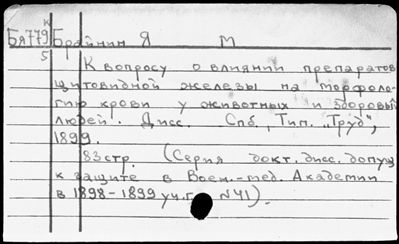 К
Бя779 Брайнин Я М
5
К вопросу о влиянии препаратов
щитовидной железы на морфоло-
гию крови у животных и здоровых
людей. Дисс. Спб, Тип. „Труд",
1899.
83стр. (Серия докт. дисс. допущ
к защите в Воен.-мед. Академии
в 1898-1899 уч.г. №41).